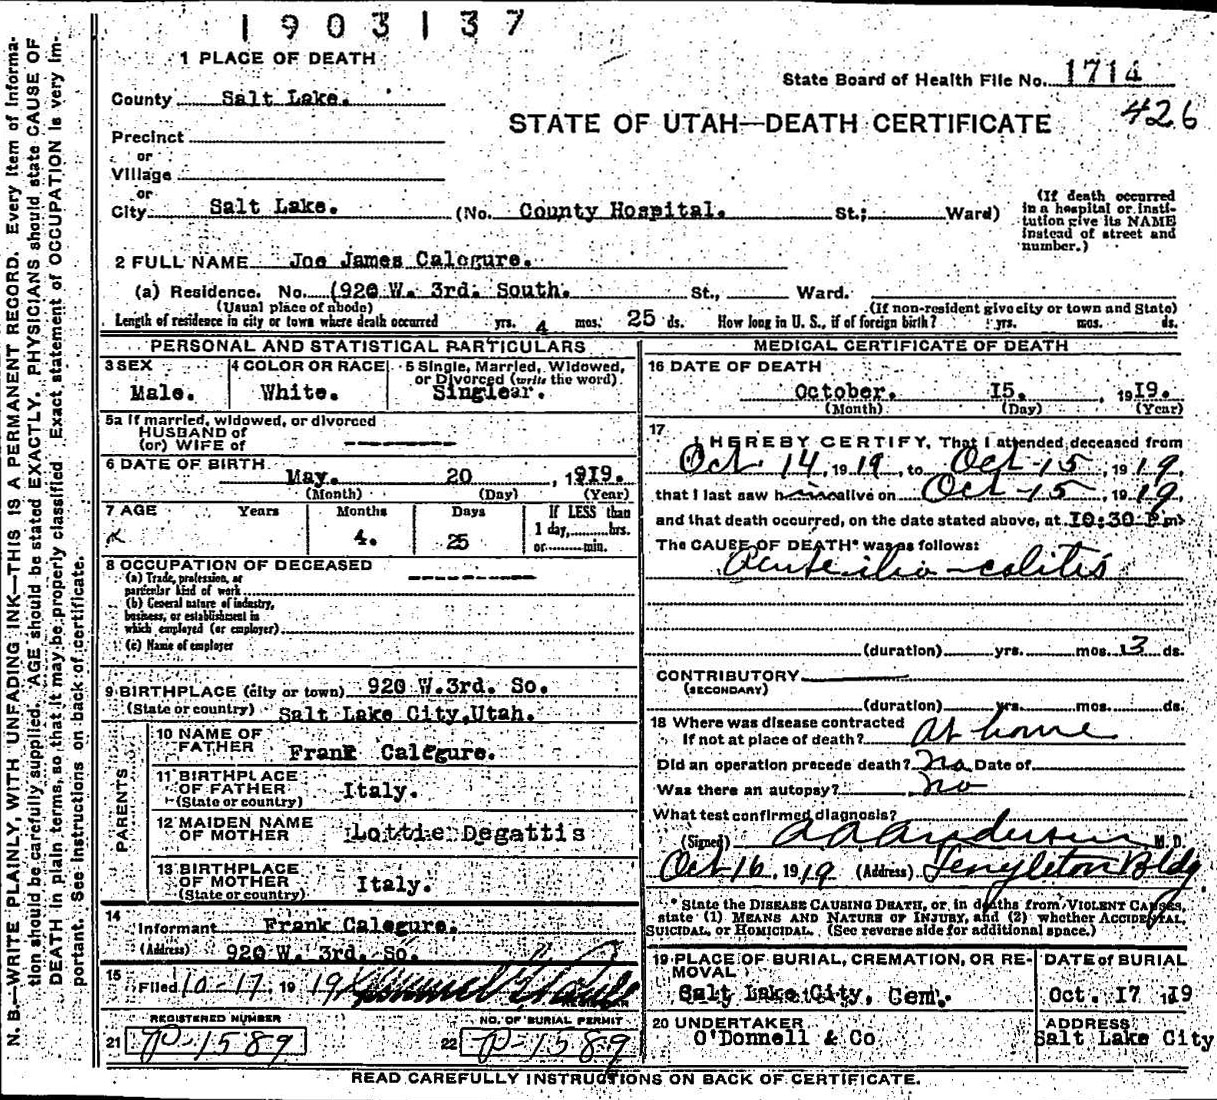 1903137
1 PLACE OF DEATH
State Board of Health File No. 1714
County Salt Lake.
426
STATE OF UTAH—DEATH CERTIFICATE
Precinct
or
Village
or
City Salt Lake. (No. County Hospital. St.; Ward)
(If death occurred in a hospital or insti-
tution give its NAME
instead of street and
number.)
2 FULL NAME Joe James Calogure.
(a) Residence. No. (920 W. 3rd. South. St., Ward.
(Usual place of abode) (If non-resident give city or town and State)
Length of residence in city or town where death occurred yrs. 4 mos. 25 ds. How long in U. S., if of foreign birth? yrs. mos. ds.
PERSONAL AND STATISTICAL PARTICULARS
3 SEX 4 COLOR OR RACE 5 Single, Married, Widowed,
or Divorced (write the word).
Male. White. Singlear.
5a If married, widowed, or divorced
HUSBAND of
(or) WIFE of
6 DATE OF BIRTH May. 20, 1919.
(Month) (Day) (Year)
7 AGE Years Months Days If LESS than
1 day, hrs.
or min.
4. 25
8 OCCUPATION OF DECEASED
(a) Trade, profession, or
particular kind of work
(b) General nature of industry,
business, or establishment in
which employed (or employer)
(c) Name of employer
9 BIRTHPLACE (city or town) 920 W.3rd. So.
(State or country) Salt Lake City,Utah.
PARENTS
10 NAME OF
FATHER Frank Calegure.
11 BIRTHPLACE
OF FATHER Italy.
(State or country)
12 MAIDEN NAME
OF MOTHER Lottie Degattis
13 BIRTHPLACE
OF MOTHER Italy.
(State or country)
14
Informant Frank Calegure.
(Address) 920 W. 3rd. So.
15
Filed 10-17, 1919
REGISTERED NUMBER NO. OF BURIAL PERMIT
21 P-1589 22 P-1589
MEDICAL CERTIFICATE OF DEATH
16 DATE OF DEATH
October. 15. , 1919.
(Month) (Day) (Year)
17
I HEREBY CERTIFY, That I attended deceased from
Oct 14, 1919, to Oct-15, 1919,
that I last saw him alive on Oct-15, 1919,
and that death occurred, on the date stated above, at 10:30 P.m
The CAUSE OF DEATH* was as follows:
Acute ilio-colitis
(duration) yrs. mos. 3 ds.
CONTRIBUTORY
(SECONDARY)
(duration) yrs. mos. ds.
18 Where was disease contracted
If not at place of death? at home
Did an operation precede death? no Date of
Was there an autopsy? no
What test confirmed diagnosis?
(Signed) A A Anderson M. D.
Oct 16, 1919 (Address) Templeton Bldg
* State the DISEASE CAUSING DEATH, or, in deaths from VIOLENT CAUSES,
state (1) MEANS AND NATURE OF INJURY, and (2) whether ACCIDENTAL,
SUICIDAL, or HOMICIDAL. (See reverse side for additional space.)
19 PLACE OF BURIAL, CREMATION, OR RE-
MOVAL
Salt Lake City, Cem.
DATE of BURIAL
Oct. 17 1919
20 UNDERTAKER
O'Donnell & Co
ADDRESS
Salt Lake City
READ CAREFULLY INSTRUCTIONS ON BACK OF CERTIFICATE.
N. B.—WRITE PLAINLY, WITH UNFADING INK—THIS IS A PERMANENT RECORD. Every item of informa-
tion should be carefully supplied. AGE should be stated EXACTLY. PHYSICIANS should state CAUSE OF
DEATH in plain terms, so that it may be properly classified. Exact statement of OCCUPATION is very im-
portant. See instructions on back of certificate.